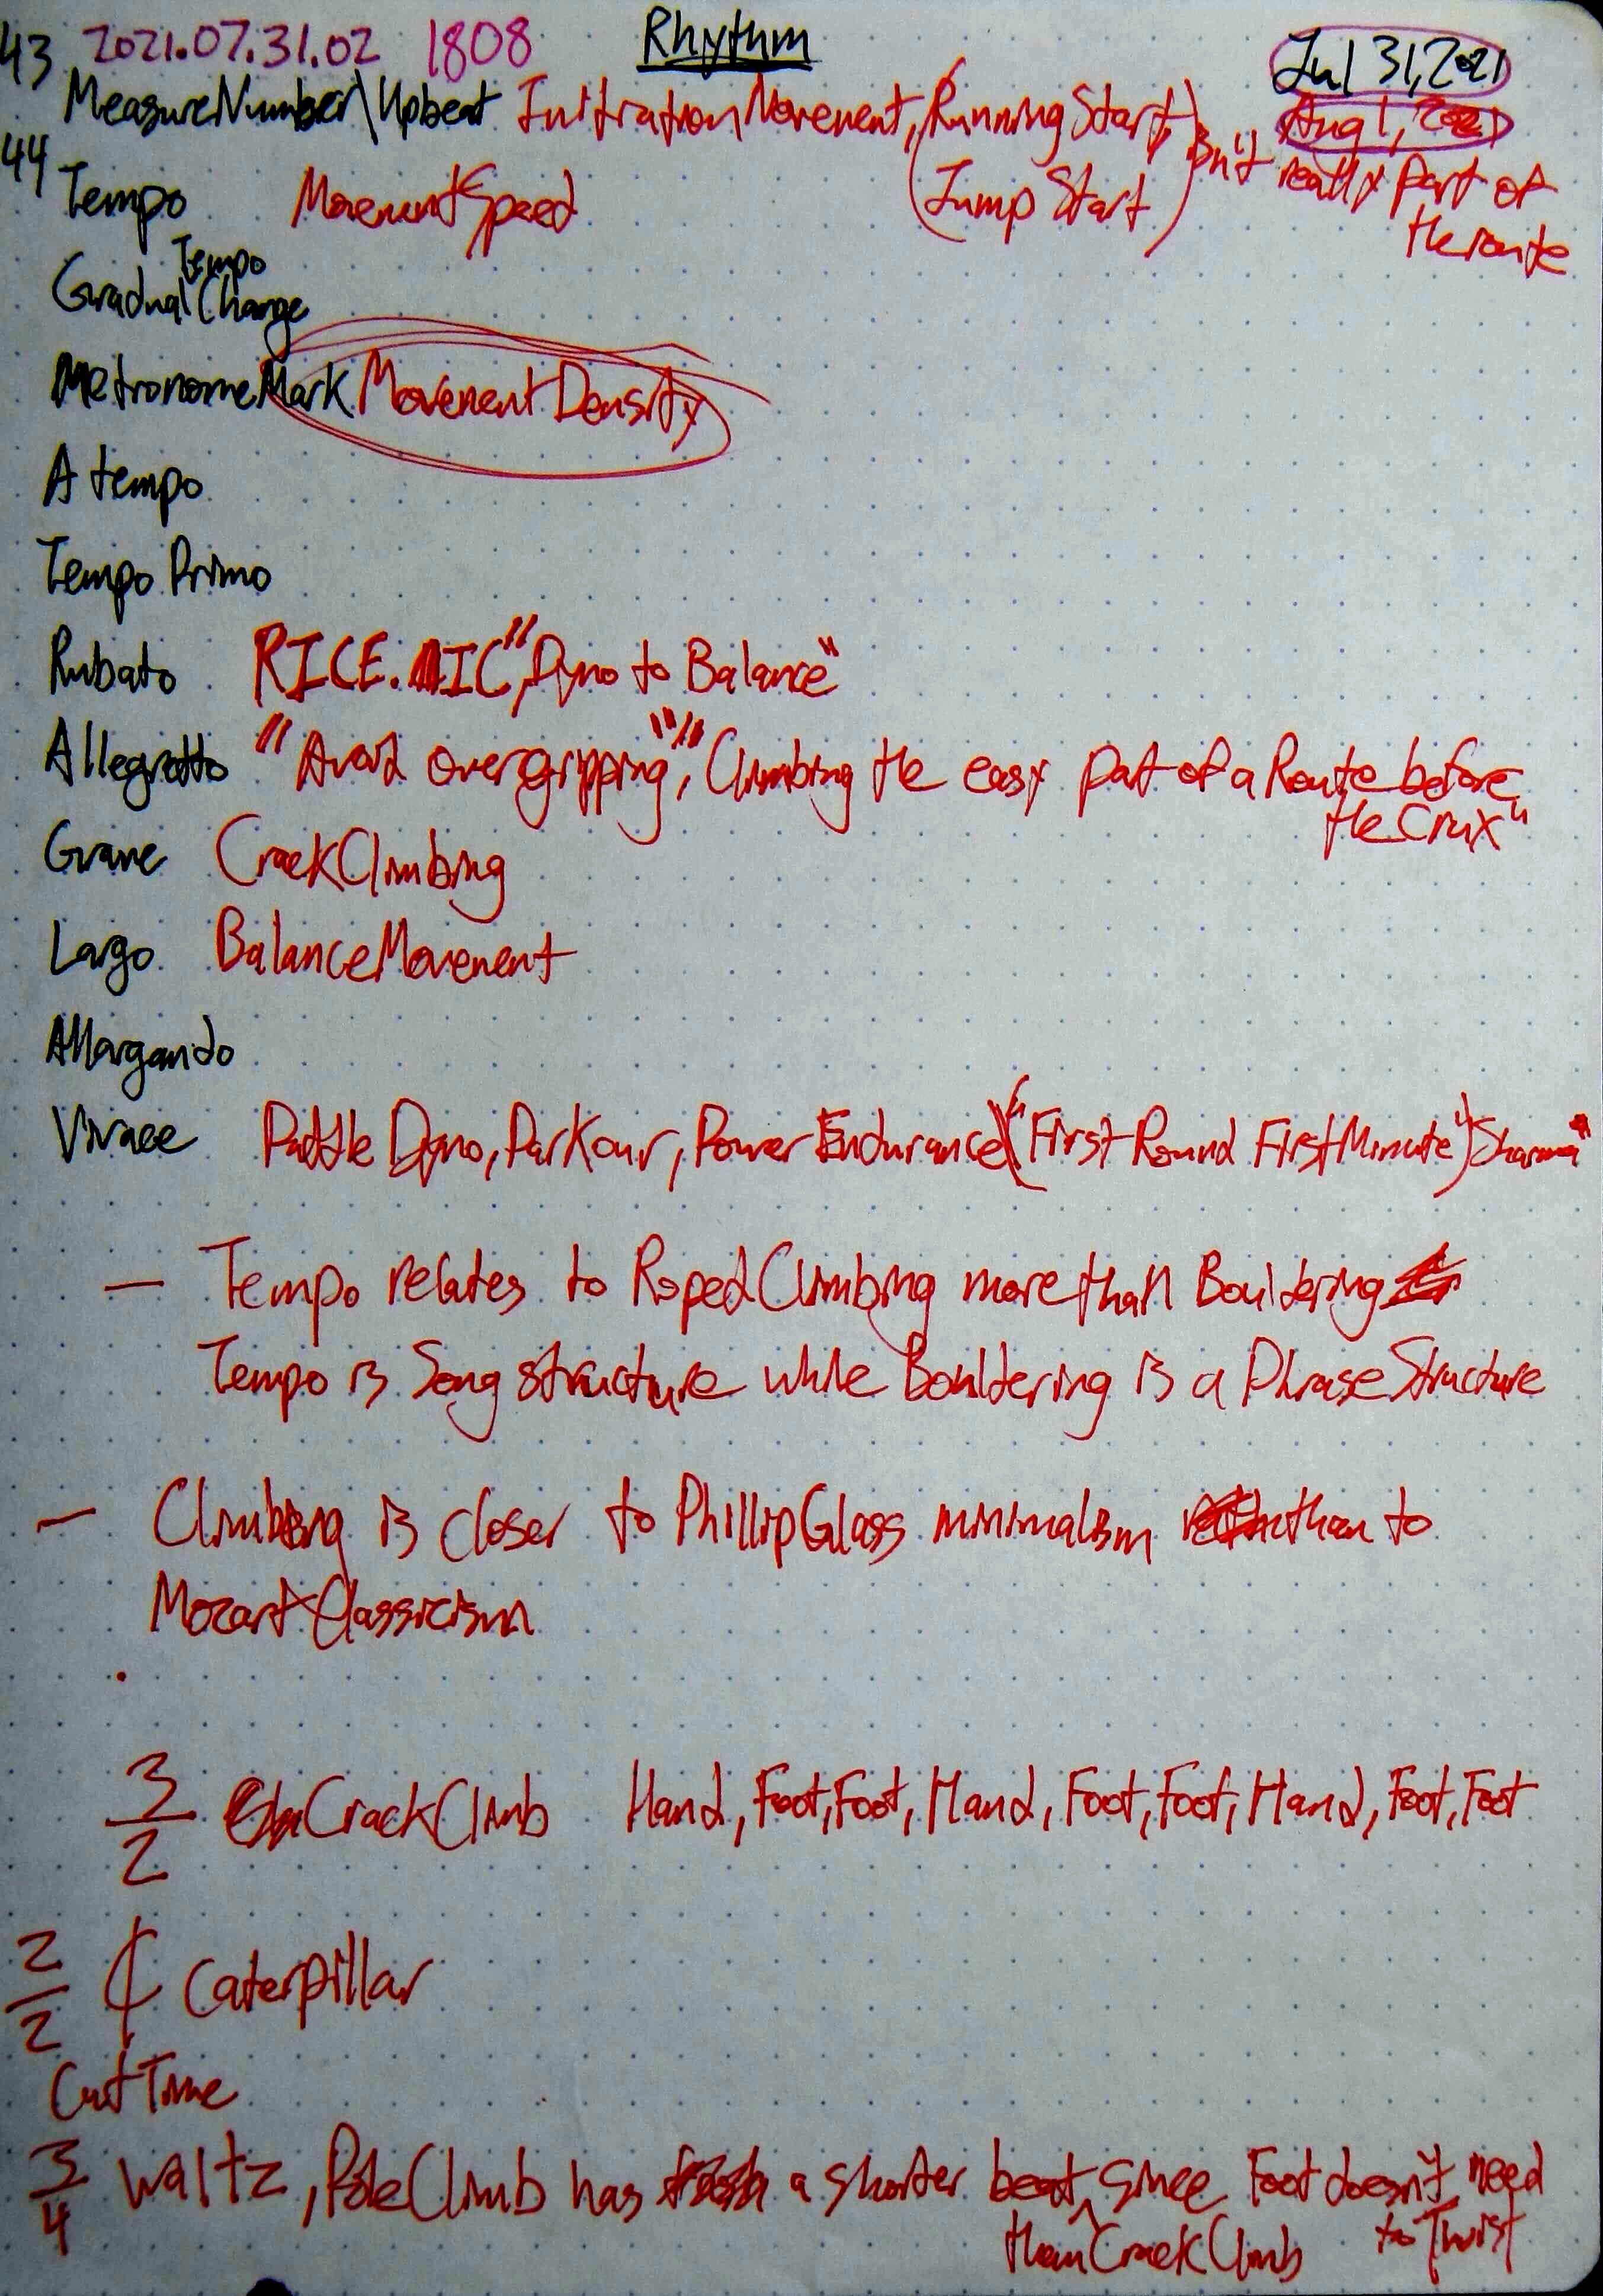 43 2021.07.31.02 1808 Rhythm Jul 31, 2021
MeasureNumber\Upbeat InitiationMovement, (Running Start, Aug 1, 2021
44 Jump Start) isn't really part of the route
Tempo MovementSpeed
Gradual Tempo Change
MetronomeMark MovementDensity
A tempo
Tempo Primo
Rubato RICE. IC", Dyno to Balance"
Allegretto "Avoid overgripping", "Climbing the easy part of a Route before the Crux"
Grave CrackClimbing
Largo BalanceMovement
Allargando
Vivace Paddle Dyno, Parkour, Power Endurance ("First Round First Minute") Sharma"
— Tempo relates to RopedClimbing more than Bouldering
Tempo is Song structure while Bouldering is a PhraseStructure
— Climbing is closer to PhillipGlass minimalism than to
Mozart Classicism
3/2 CrackClimb Hand, Foot, Foot, Hand, Foot, Foot, Hand, Foot, Foot
2/2 ¢ Caterpillar
Cut Time
3/4 Waltz, PoleClimb has a shorter beat than CrackClimb since Foot doesn't need to Twist